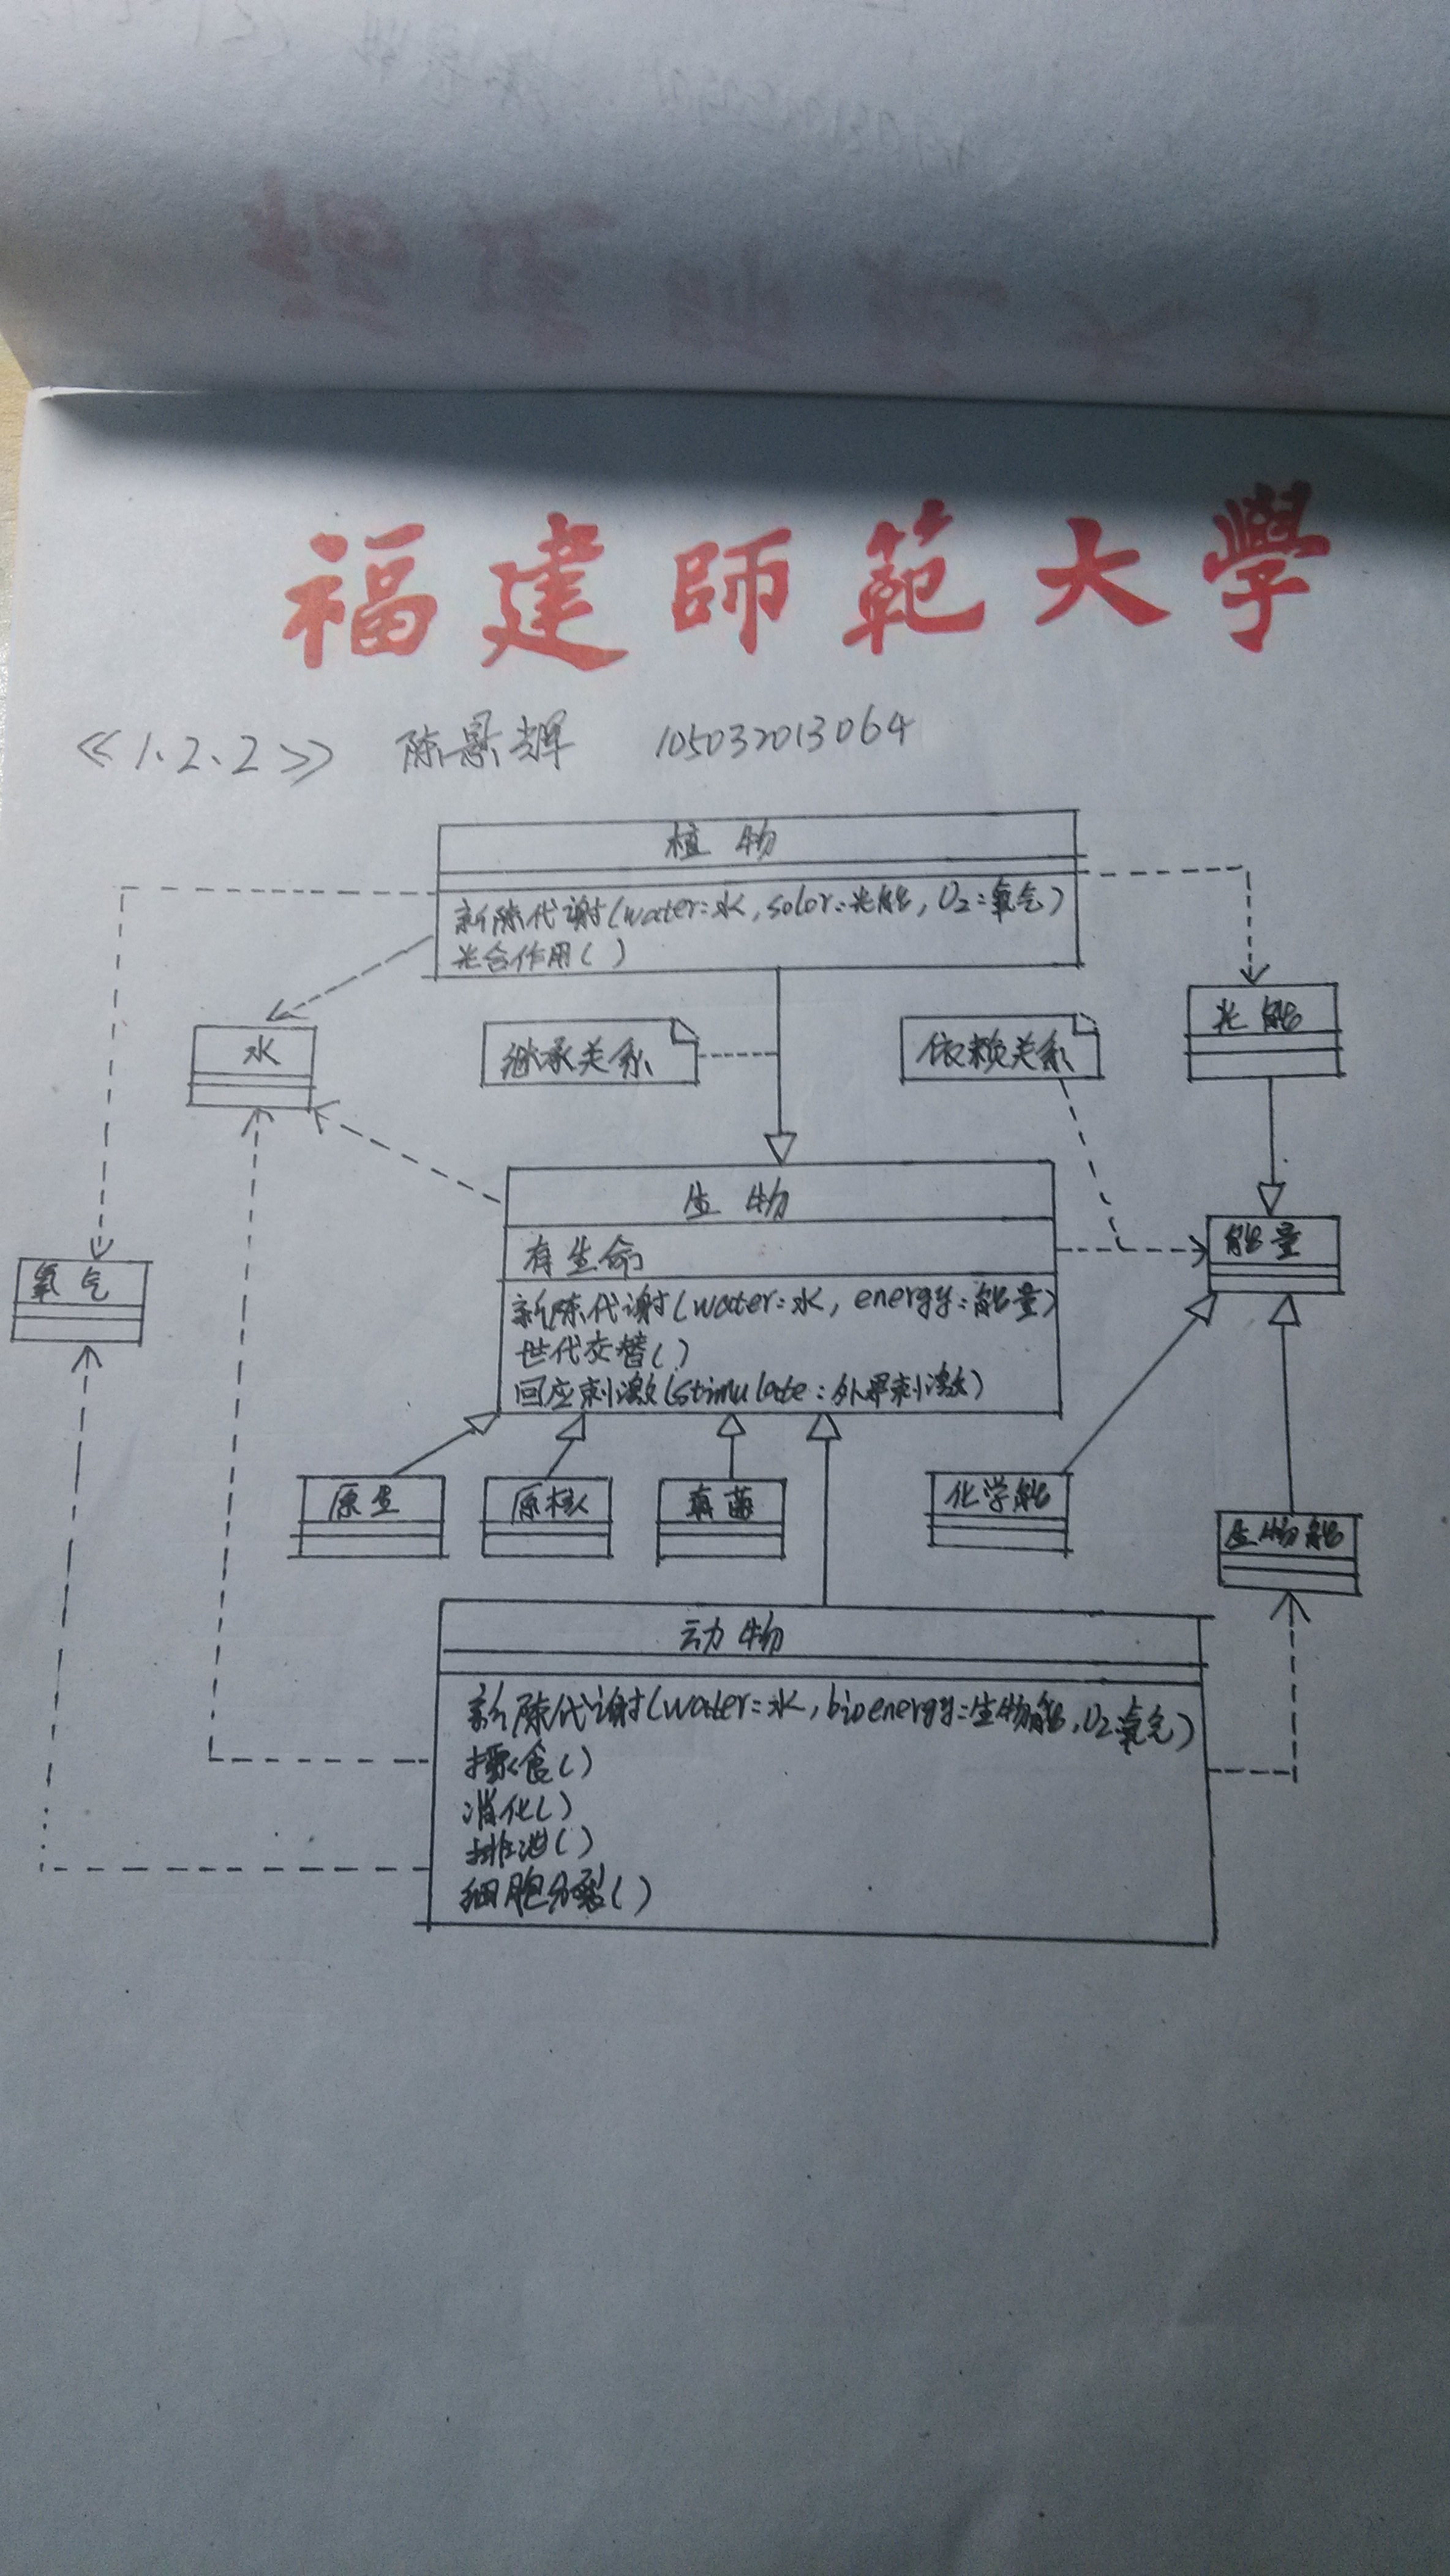 福建師範大學
<<1.2.2>> 陈景辉 105032013064
植物
新陈代谢(water:水,solor:光能,O2:氧气)
光合作用()
光能
水
继承关系
依赖关系
生物
有生命
新陈代谢(water:水, energy:能量)
世代交替()
回应刺激(stimulate:外界刺激)
能量
氧气
原生
原核
真菌
化学能
生物能
动物
新陈代谢(water:水,bioenergy:生物能,O2:氧气)
摄食()
消化()
排泄()
细胞分裂()